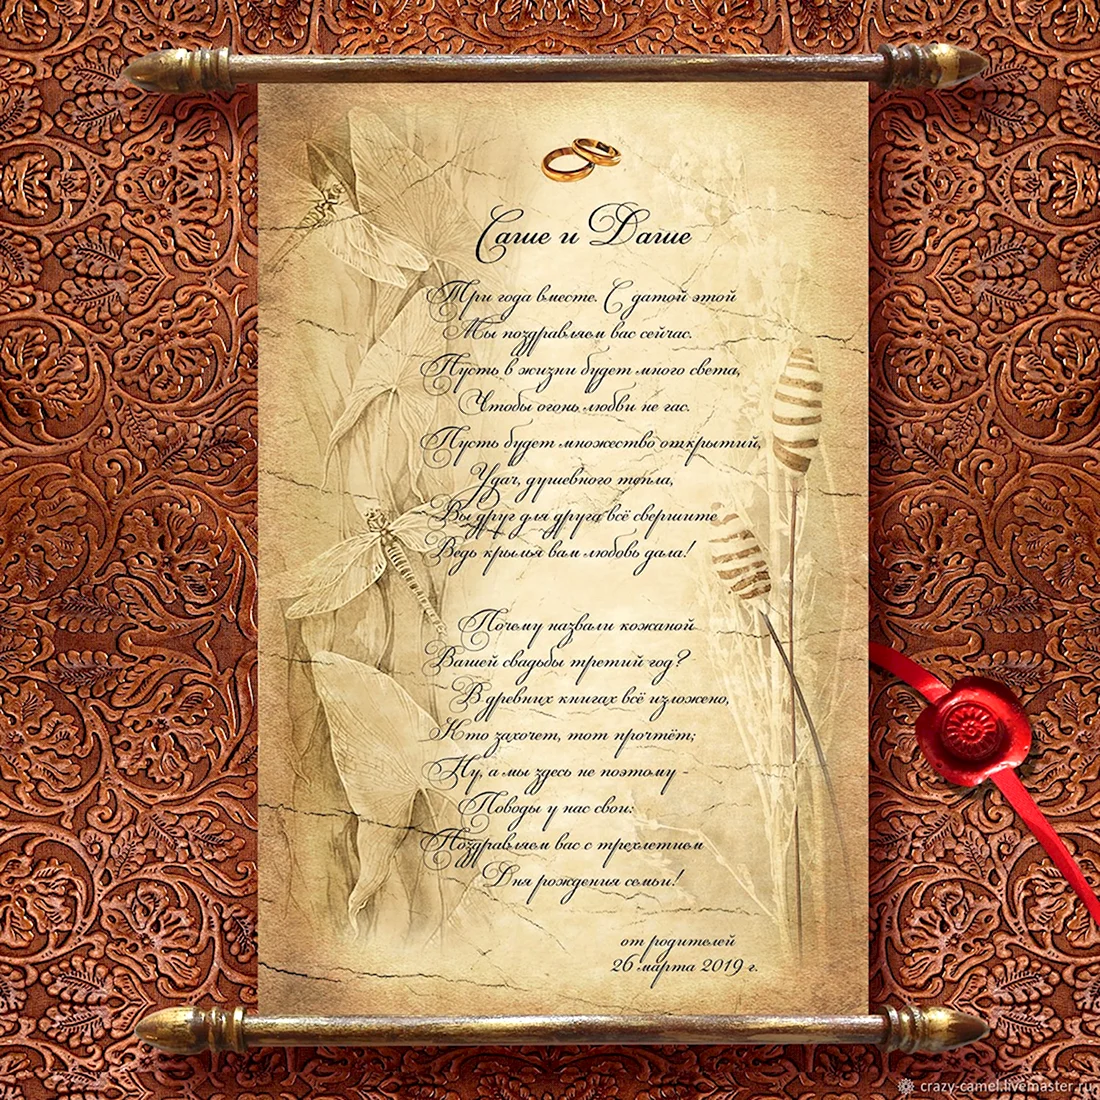 Саше и Даше
Три года вместе. С датой этой
Мы поздравляем вас сейчас.
Пусть в жизни будет много света,
Чтобы огонь любви не гас.
Пусть будет множество открытий,
Удач, душевного тепла,
Вы друг для друга всё свершите
Ведь крылья вам любовь дала!
Почему назвали кожаной
Вашей свадьбы третий год?
В древних книгах всё изложено,
Кто захочет, тот прочтёт;
Ну, а мы здесь не поэтому -
Поводы у нас свои:
Поздравляем вас с трехлетием
Дня рождения семьи!
от родителей
26 марта 2019 г.
crazy-camel.livemaster.ru